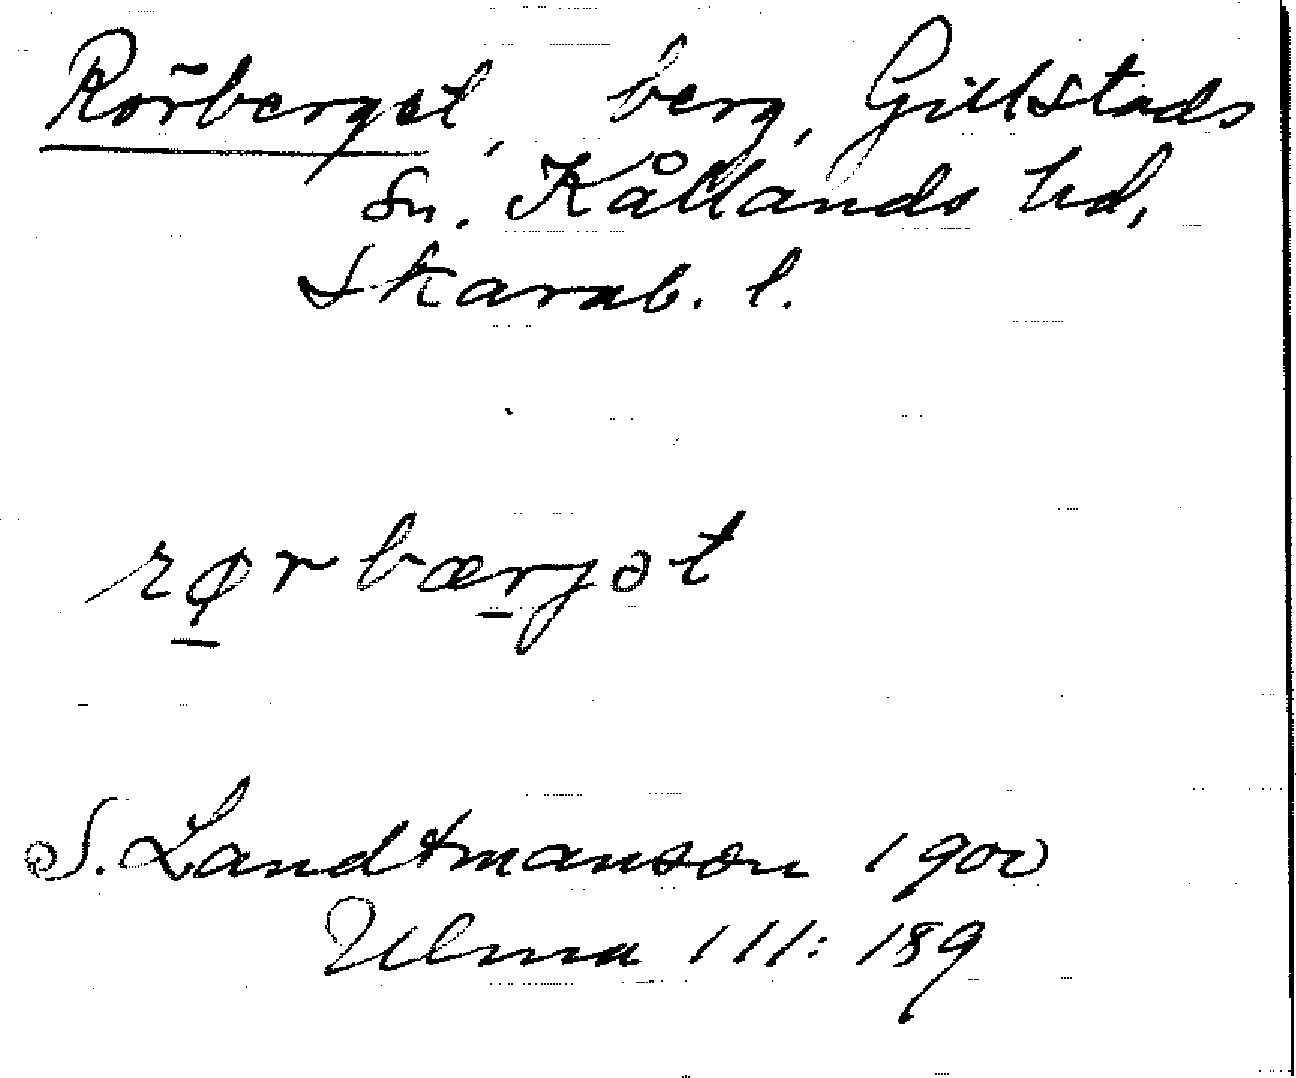 Rörberget, berg, Gillstads
sn. Kållands hd,
Skarab. l.
rørbærjət
S. Landtmanson 1900
Ulma 111: 189